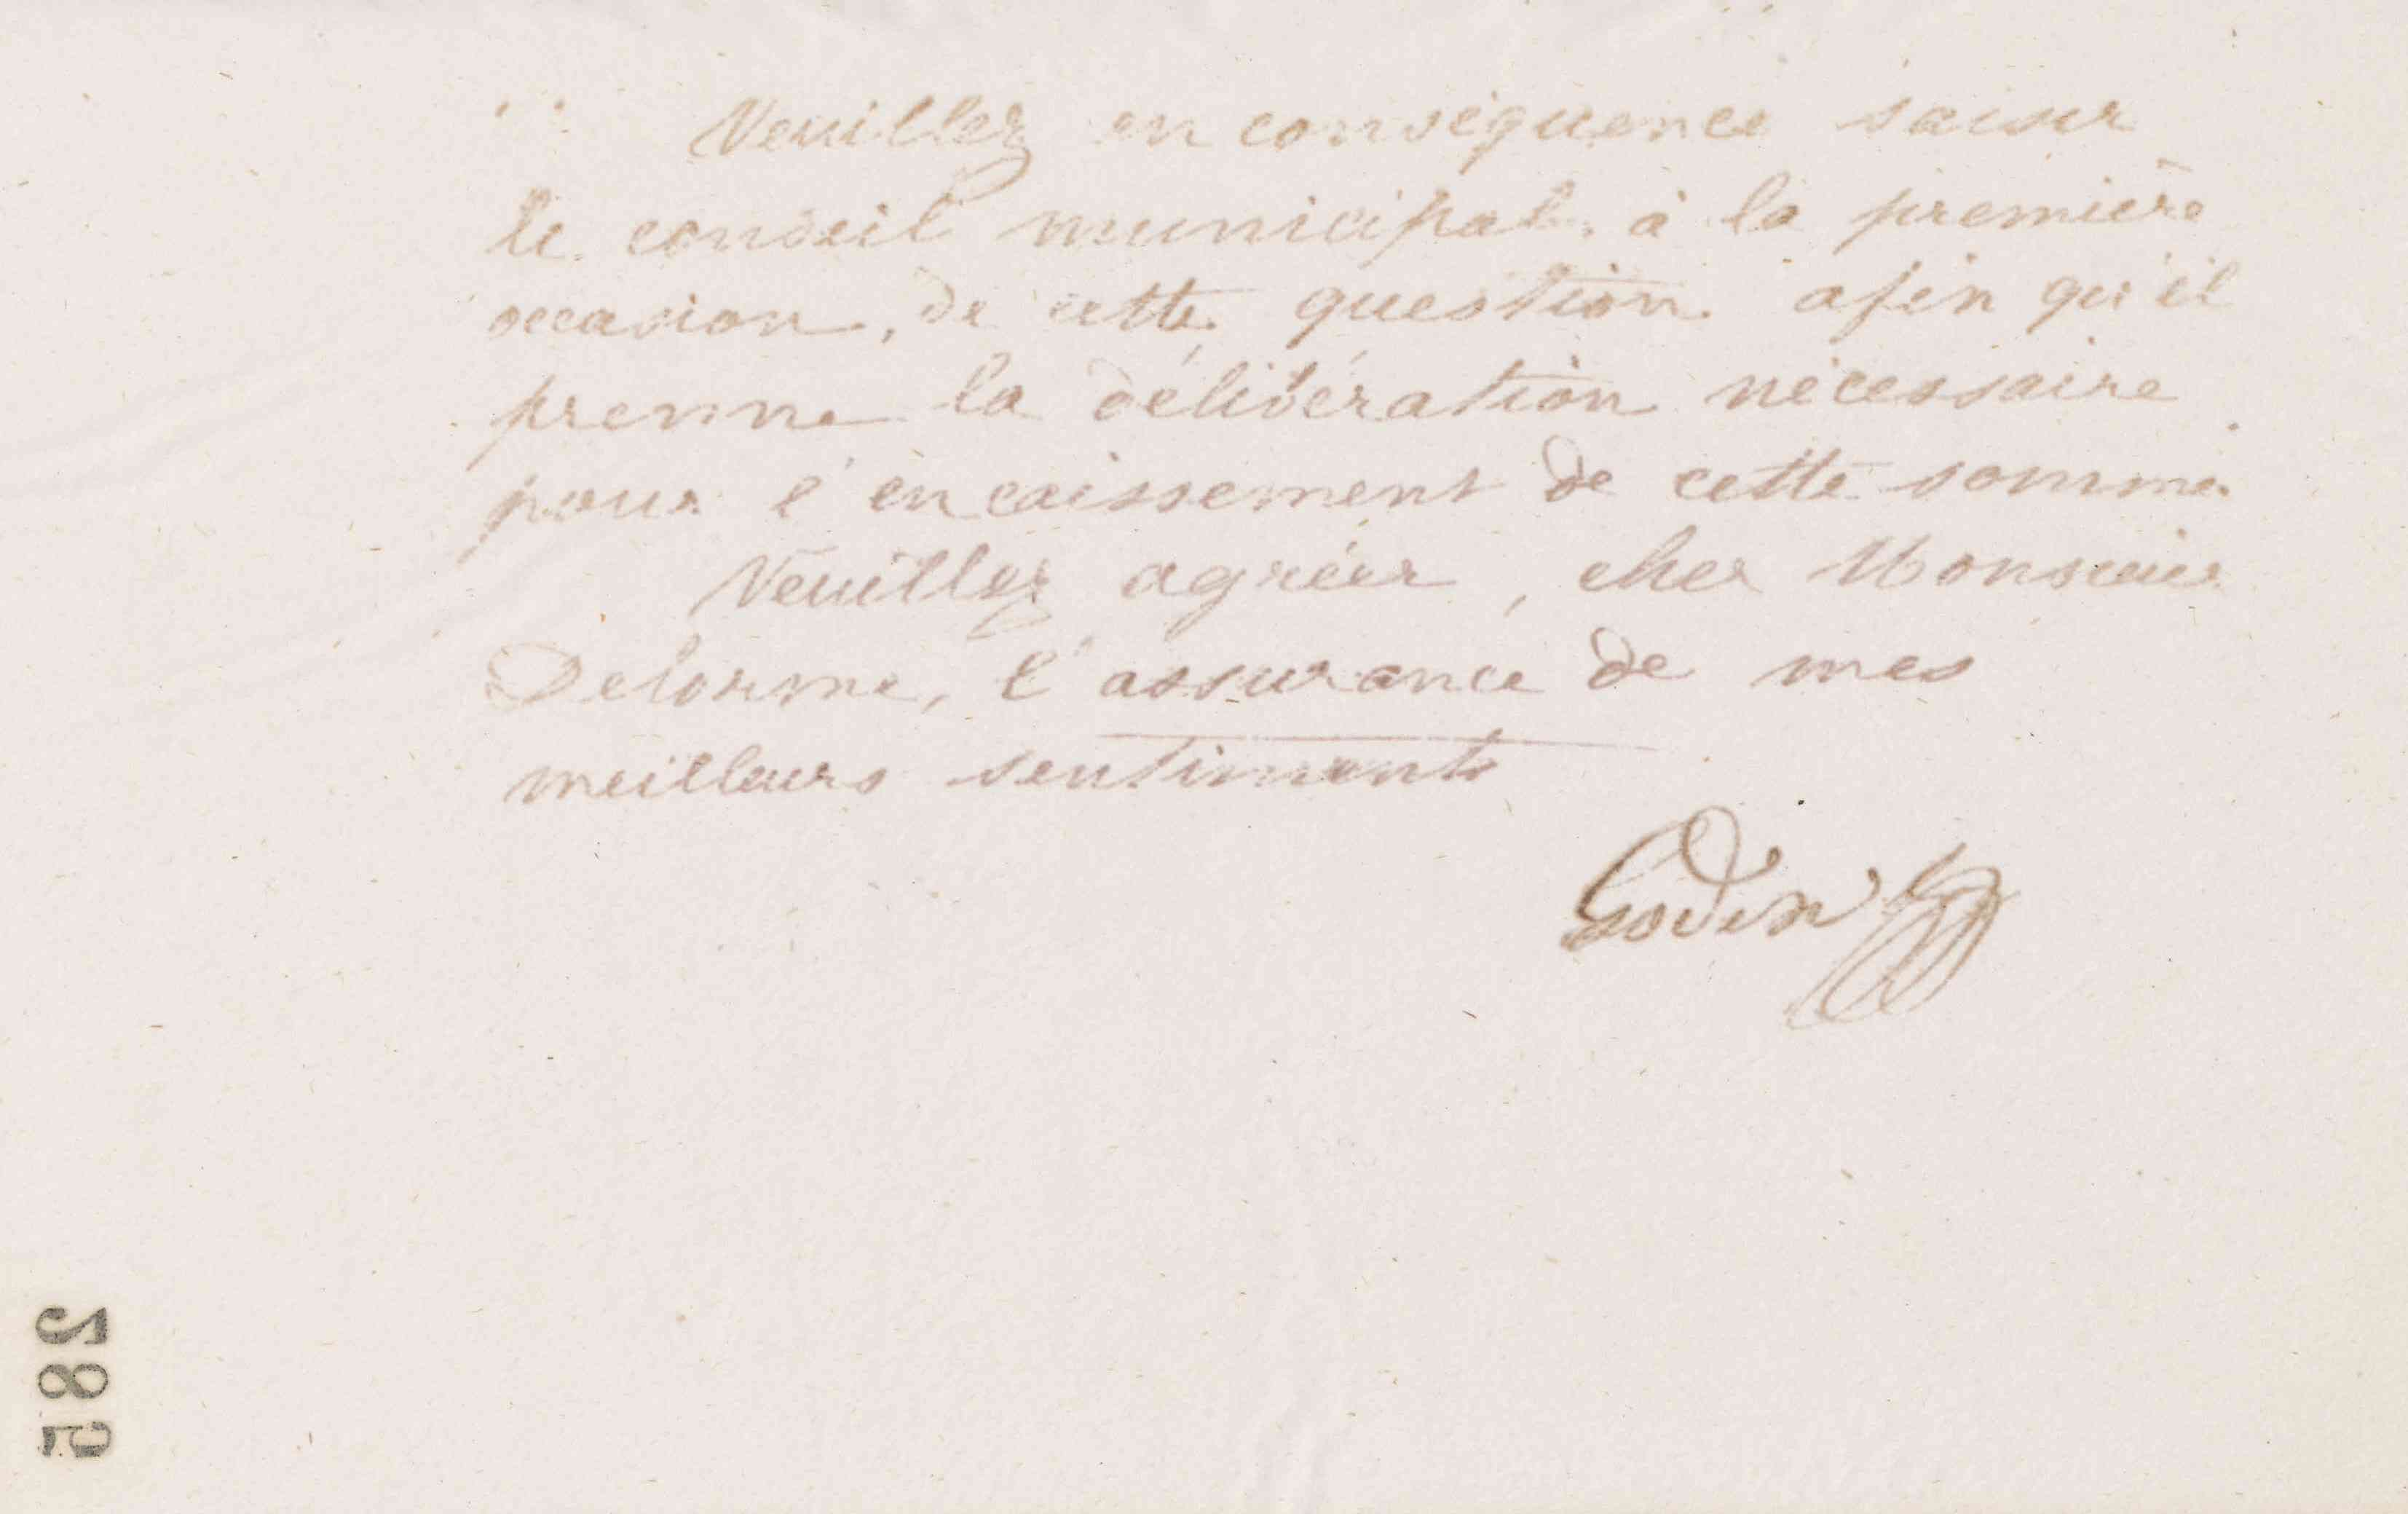 Veuillez en conséquence saisir
le conseil municipal, à la première
occasion, de cette question afin qu'il
prenne la délibération nécessaire
pour l'encaissement de cette somme.
Veuillez agréer, cher Monsieur
Delorme, l'assurance de mes
meilleurs sentiments
Godin
285